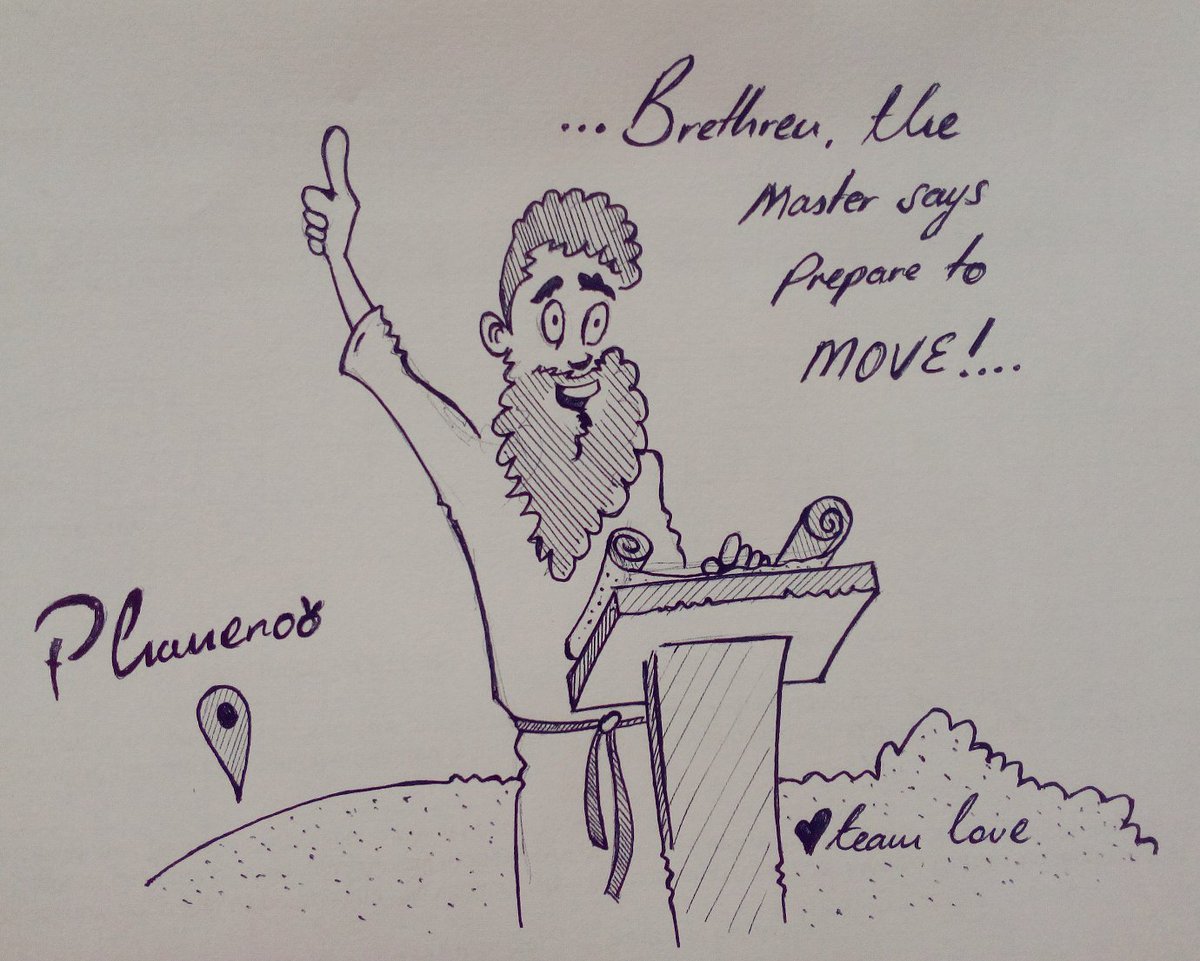 ...Brethren, the
Master says
Prepare to
MOVE!....
♥team love